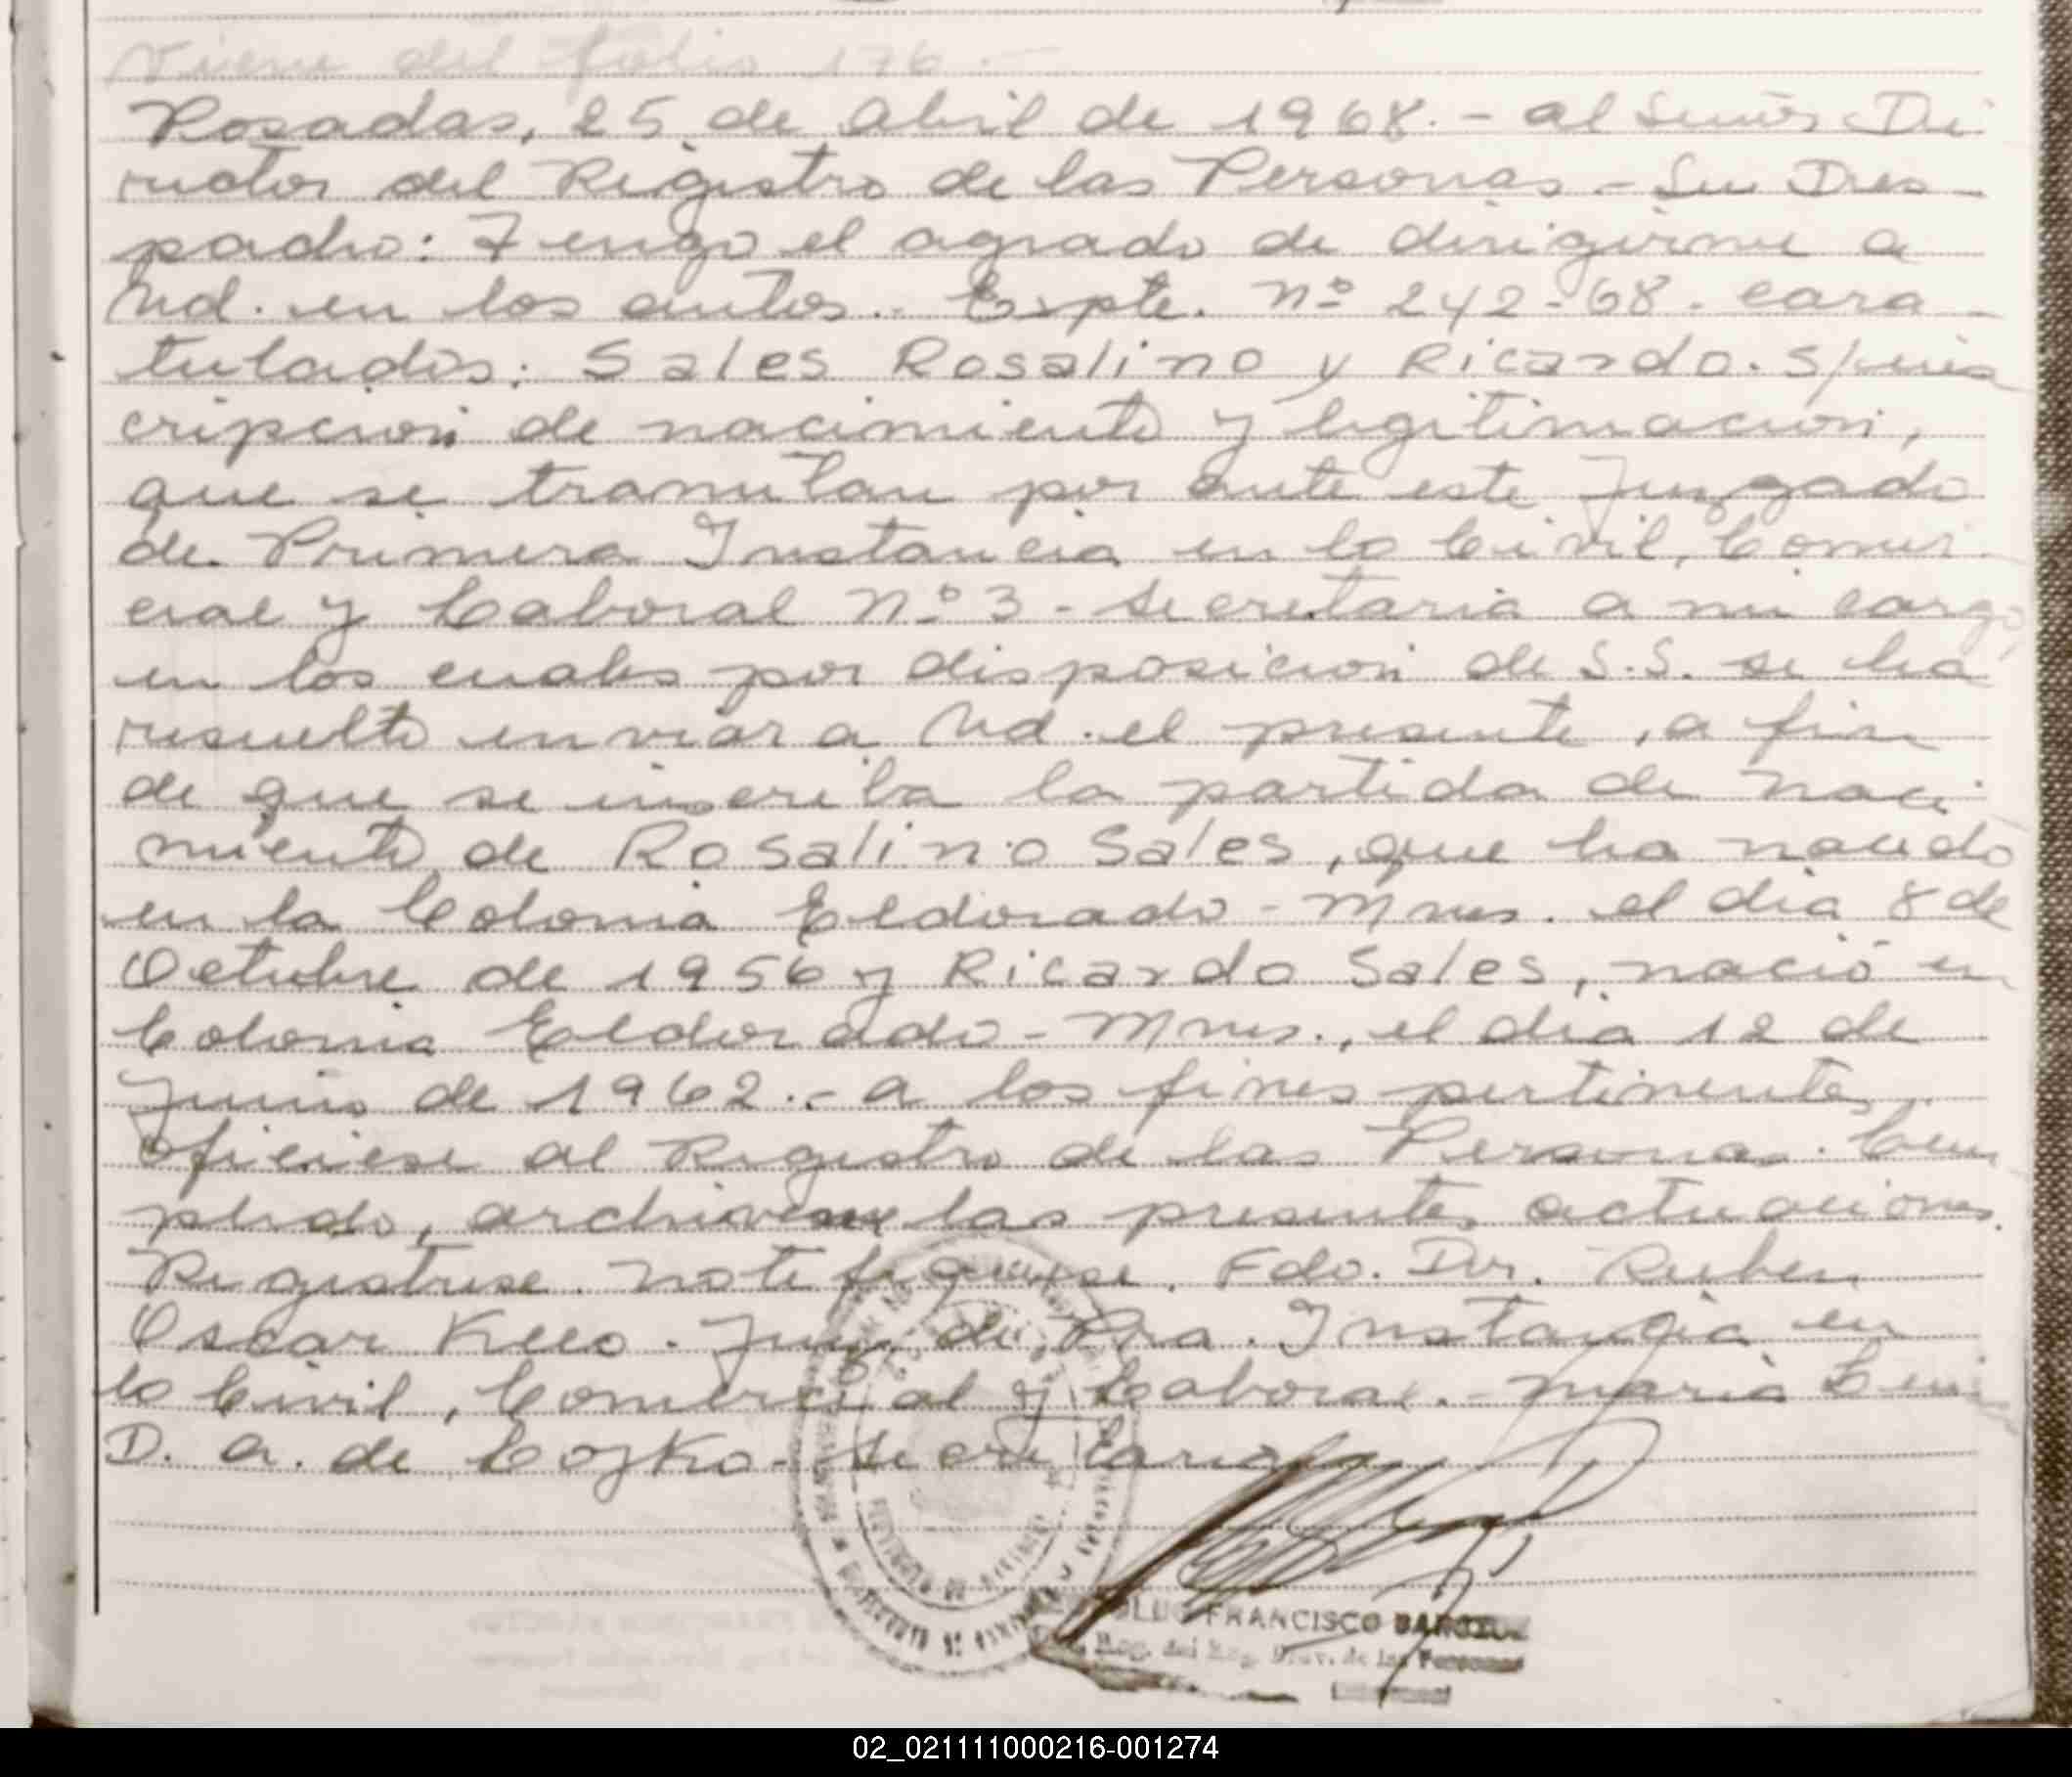 Viene del folio 176.-
Posadas, 25 de Abril de 1968.- Al Señor Di
rector del Registro de las Personas.- Su Des-
pacho: Tengo el agrado de dirigirme a
Ud. en los autos.. Expte. Nº 242-68. cara-
tulados: Sales Rosalino y Ricardo. S/ins
cripcion de nacimiento y legitimacion,
que se tramitan por ante este Juzgado
de Primera Instancia en lo Civil, Comer
cial y Laboral Nº 3 - Secretaria a mi cargo,
en los cuales por disposicion de S.S. se ha
resuelto enviar a Ud. el presente, a fin
de que se inscriba la partida de naci
miento de Rosalino Sales, que ha nacido
en la Colonia Eldorado - Mnes. el dia 8 de
Octubre de 1956 y Ricardo Sales, nació en
Colonia Eldorado - Mnes., el dia 12 de
Junio de 1962.- A los fines pertinentes
ofíciese al Registro de las Personas. Cum
plido, archivese las presentes actuaciones.
Registrese. Notifiquese. Fdo. Dr. Ruben
Oscar Juez de Pra. Instancia en
lo Civil, Comercial y Laboral.- Maria
D. A. de Cojko - Secretaria
FRANCISCO
Reg. del Reg. Prov. de las Personas
02_021111000216-001274